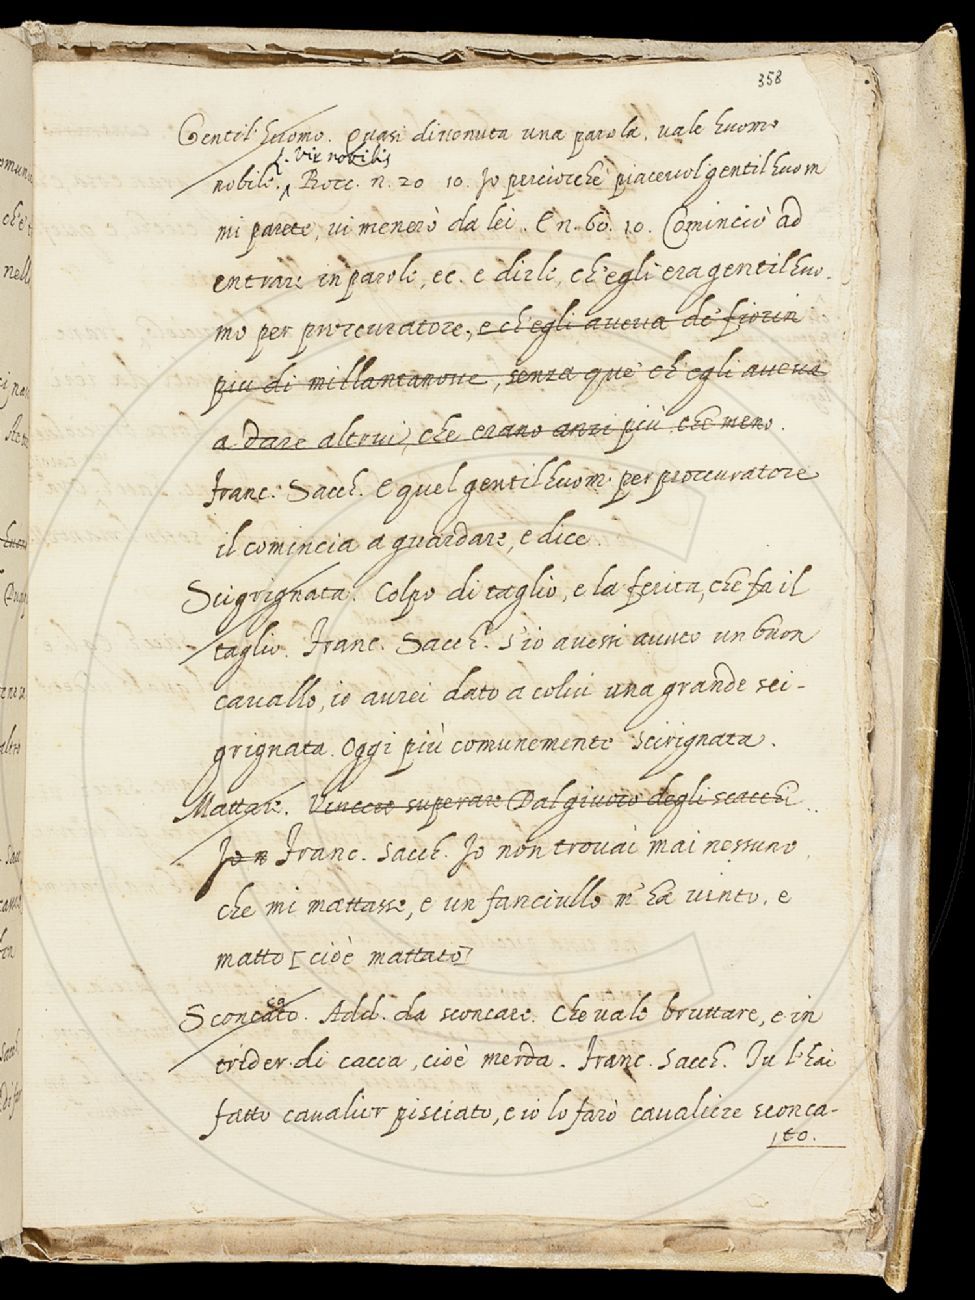 358
Gentil'huomo. Quasi divenuta una parola. vale huomo
L. Vir nobilis
nobile. Bocc. n. 20 10. Io perciocchè piacevol gentilhuom
mi parete, vi menerò da lei. E n. 60. 10. Cominciò ad
entrare in parole, ec. e dirle, ch'egli era gentilhuo-
mo per procuratore, e ch'egli aveva de' fiorin
piu di millantanove, senza que' ch'egli aveva
a dare altrui, che erano anzi più che meno.
Franc. Sacch. E quel gentilhuom per proccuratore
il comincia a guardare, e dice.
Scigrignata. Colpo di taglio, e la ferita, che fa il
taglio. Franc. Sacch. S'io avessi avuto un buon
cavallo, io aurei dato a colui una grande sci-
grignata. Oggi più comunemente scirignata.
Mattare. Vincere superare Dal giuoco degli scacchi
Franc. Sacch. Io non trovai mai nessuno,
che mi mattasse, e un fanciullo m'ha vinto, e
matto [cioè mattato]
Sconcato. Add. da sconcare. Che vale bruttare, e in
trider di cacca, cioè merda. Franc. Sacch. Tu l'hai
fatto cavalier pisciato, e io lo farò cavaliere sconca-
to.